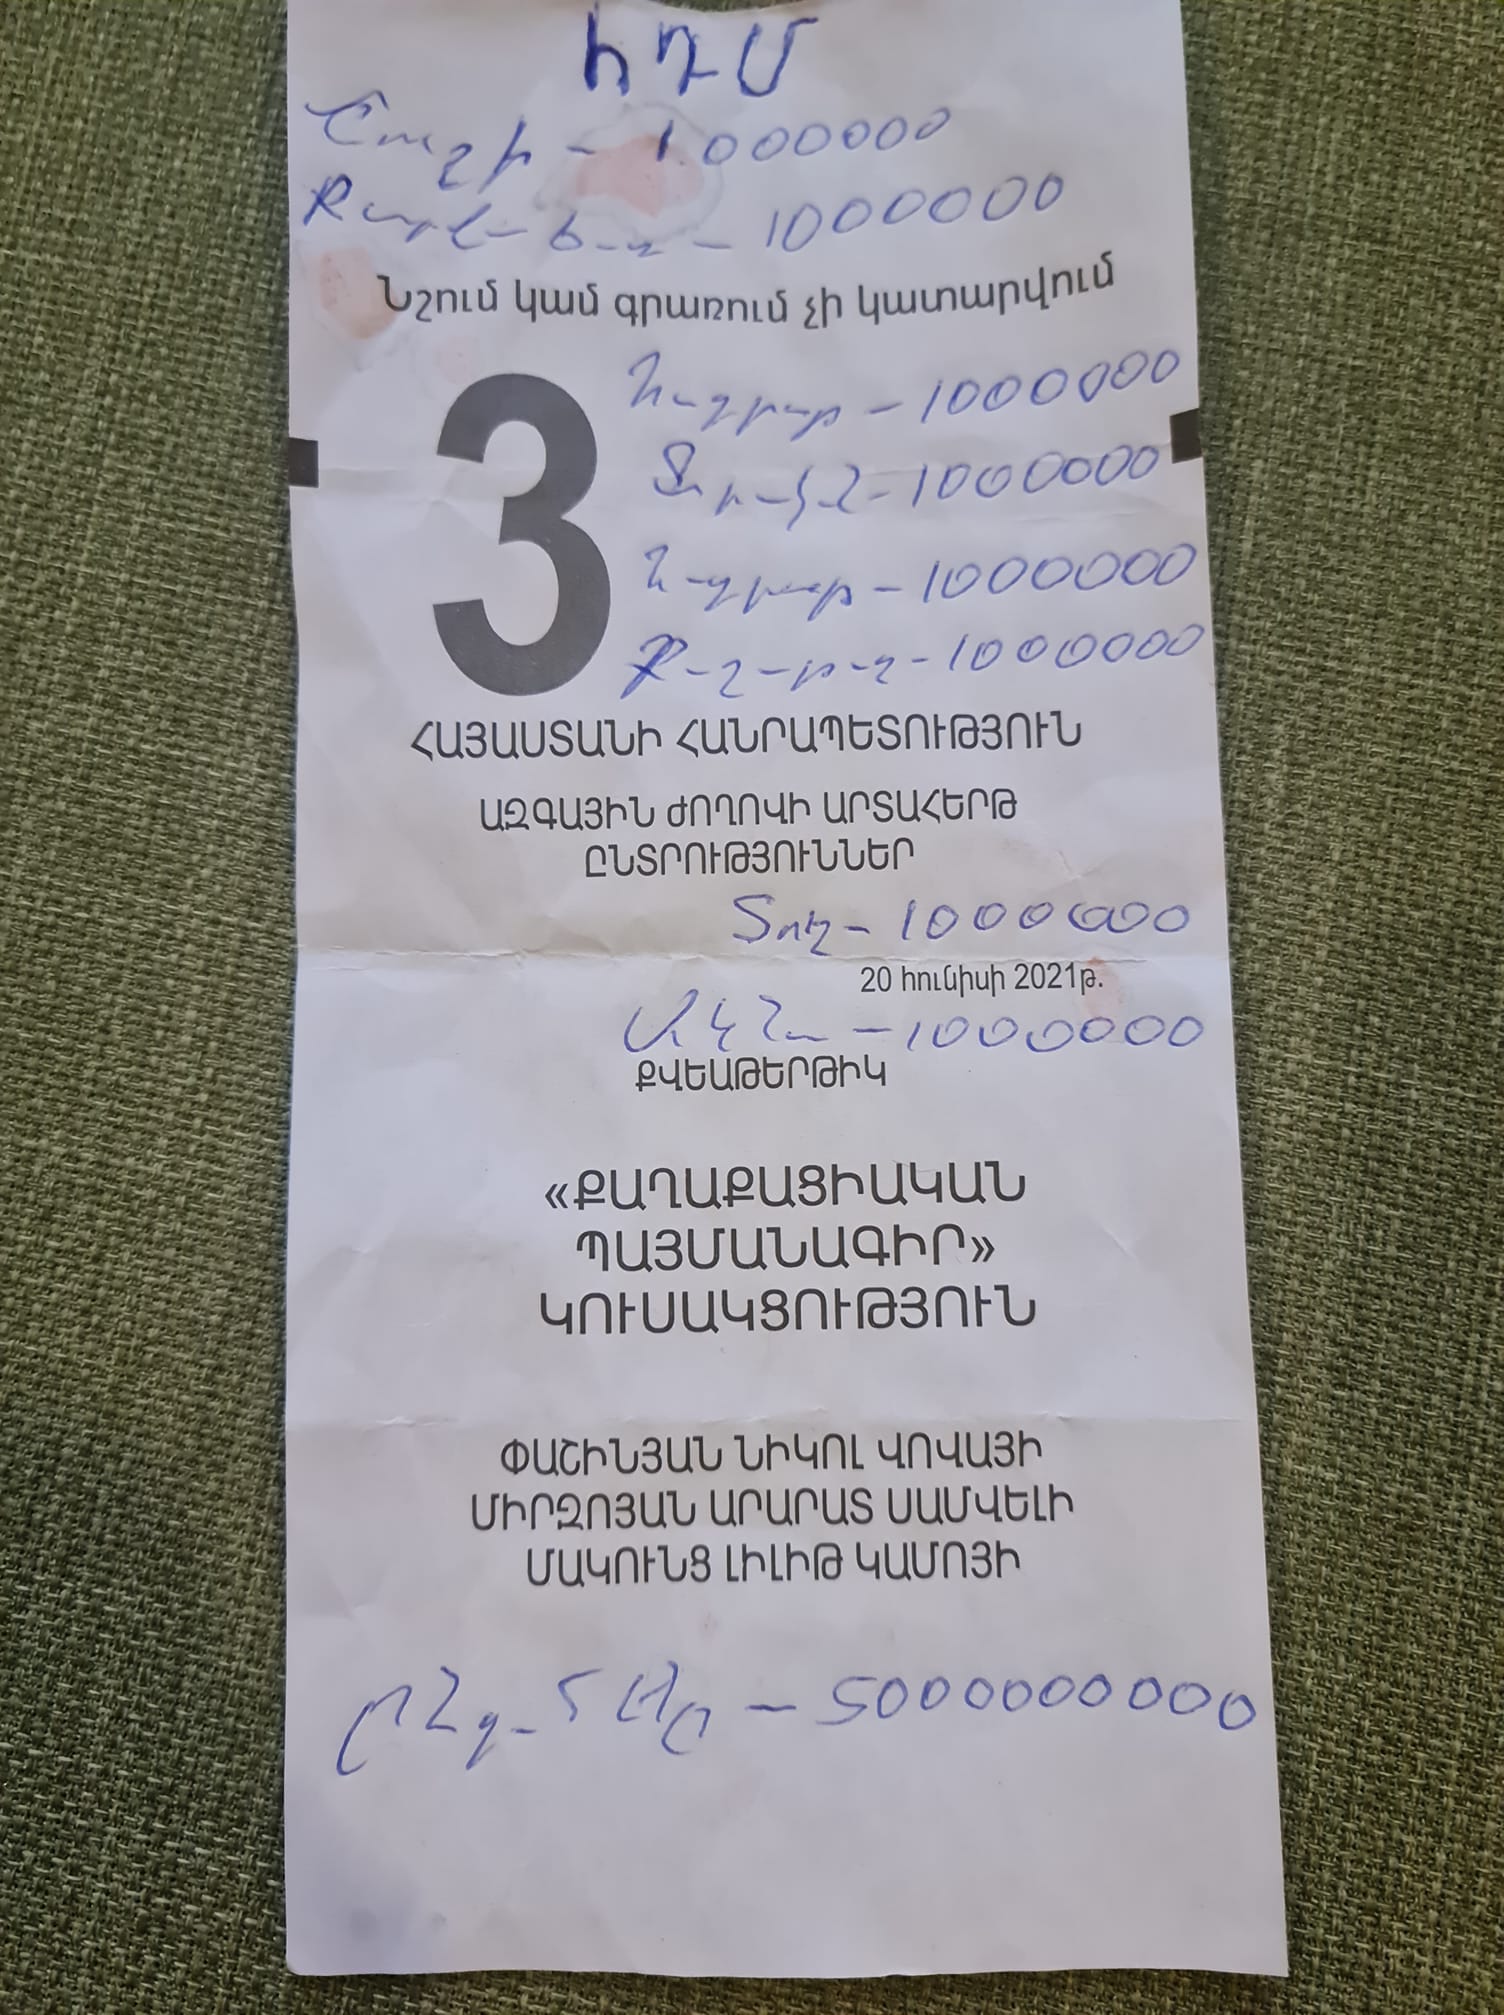 ԻԴՄ
Շուշի - 1000000
- 1000000
Նշում կամ գրառում չի կատարվում
3
- 1000000
- 1000000
- 1000000
- 1000000
ՀԱՅԱՍՏԱՆԻ ՀԱՆՐԱՊԵՏՈՒԹՅՈՒՆ
ԱԶԳԱՅԻՆ ԺՈՂՈՎԻ ԱՐՏԱՀԵՐԹ
ԸՆՏՐՈՒԹՅՈՒՆՆԵՐ
Տուշ - 1000000
20 հունիսի 2021թ.
Ակնա - 1000000
ՔՎԵԱԹԵՐԹԻԿ
«ՔԱՂԱՔԱՑԻԱԿԱՆ
ՊԱՅՄԱՆԱԳԻՐ»
ԿՈՒՍԱԿՑՈՒԹՅՈՒՆ
ՓԱՇԻՆՅԱՆ ՆԻԿՈԼ ՎՈՎԱՅԻ
ՄԻՐԶՈՅԱՆ ԱՐԱՐԱՏ ՍԱՄՎԵԼԻ
ՄԱԿՈՒՆՑ ԼԻԼԻԹ ԿԱՄՈՅԻ
Ընդ - 5000000000